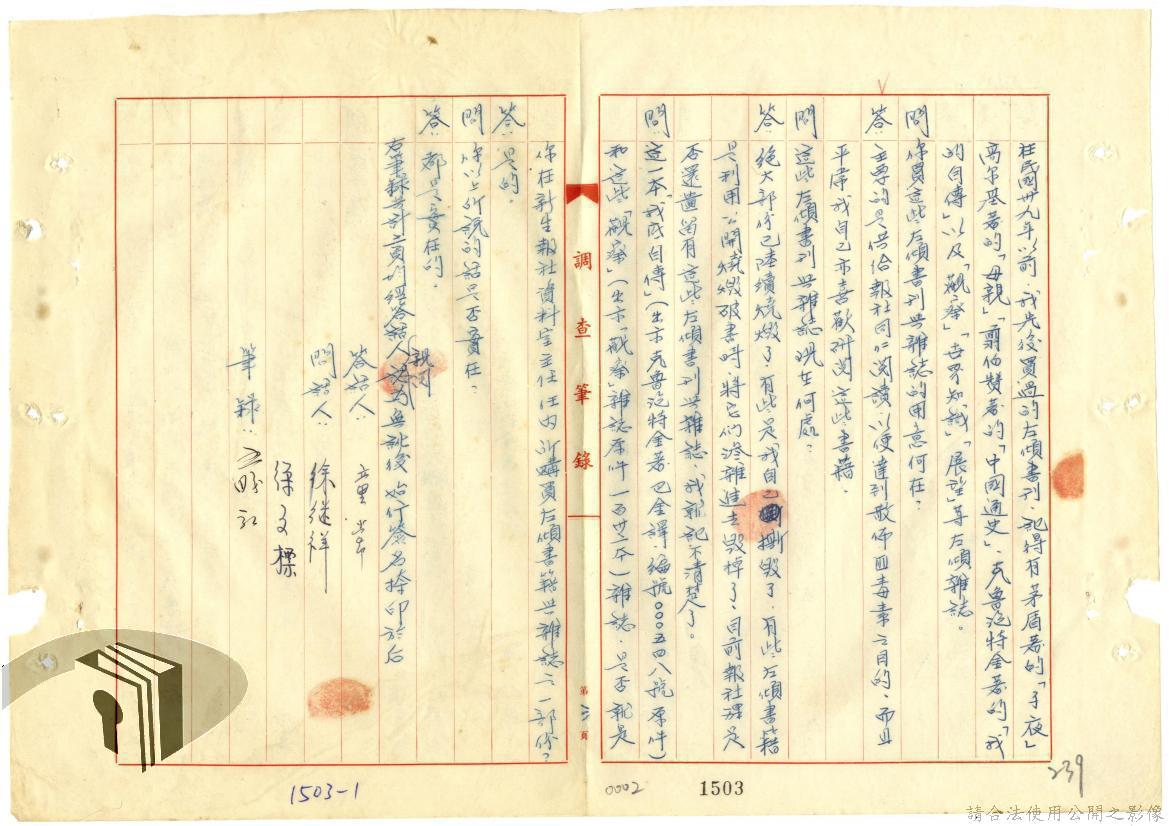 在民國卅九年以前,我先後買過的左傾書刊,記得有茅盾著的「子夜」
高尔基著的「母親」翦伯贊著的「中國通史」、克魯泡特金著的「我
的自傳」以及「觀察」「世界知識」「展望」等左傾雜誌。
問:你買這些左傾書刊與雜誌的用意何在?
答:主要的是供給報社同仁閱讀以便達到散佈
毒素之目的、而且
平常我自己亦喜歡研閱這些書籍。
問:這些左傾書刊與雜誌現在何處?
答:絕大部份已陸續燒燬了、有些是我自己
撕毀了、有些左傾書籍
是利用公開燒燬破書時將它們滲雜進去毀掉了、目前報社裡是
否還遺留有這些左傾書刊與雜誌、我就記不清楚了。
問:這一本「我底自傳」(出示克魯泡特金著巴金譯、編號000五四八號原件)
和這些「觀察」(出示「觀察」雜誌原件一百卅二本)雜誌、是否就是
調查筆錄
第三頁
你在新生報社資料室主任任內所購買左傾書籍與雜誌之一部份?
答:是的。
問:你以上所說的話是否實在?
答:都是實在的。
右筆錄共計三頁均經答話人親閱認為無訛後始行簽名捺印於后
答話人:童常
問話人:徐繼祥
徐文標
筆錄:
239
1503
0002
1503-1
請合法使用公開之影像